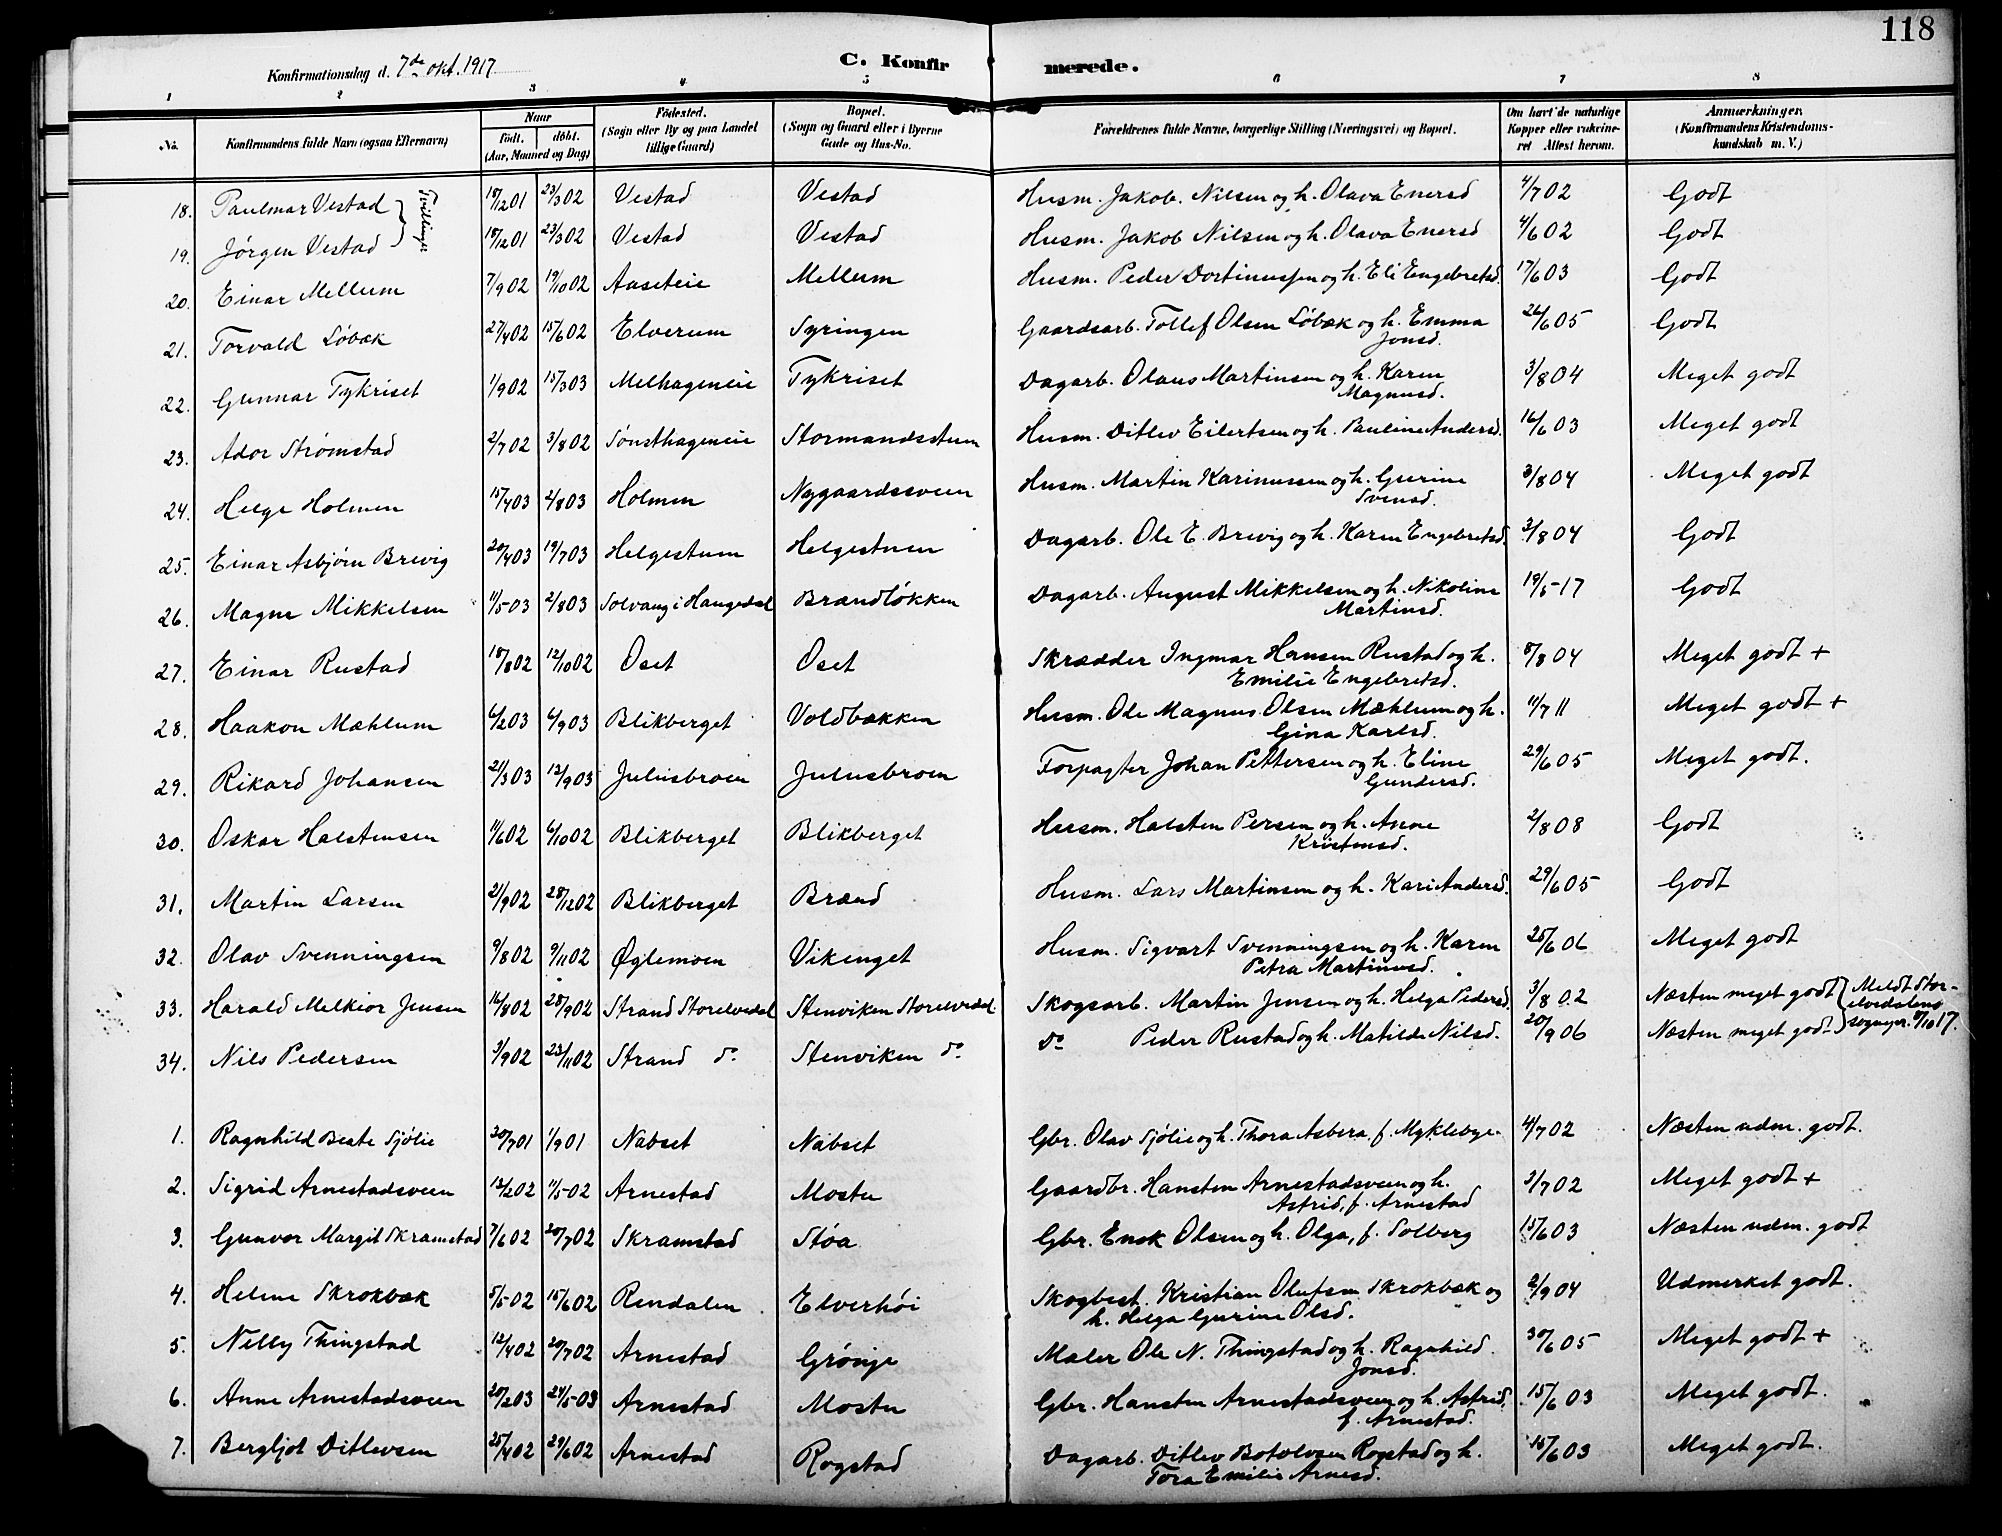 118
Konfirmationsdag d. 7de okt. 1917
C. Konfirmerede.
1 2 3 4 5 6 7 8
No.
Konfirmandens fulde Navn (ogsaa Efternavn)
Naar
födt. döbt.
(Aar, Maaned og Dag)
Födested.
(Sogn eller By og paa Landet
tillige Gaard)
Bopæl.
(Sogn og Gaard eller i Byerne
Gade og Hus-No.
Forældrenes fulde Navne, borgerlige Stilling (Næringsvei) og Bopæl.
Om havt de naturlige
Kopper eller vakcine-
ret Attest herom.
Anmærkninger.
(Konfirmandens Kristendoms-
kundskab m. V.)
18. Paulmar Vestad } Tvillinger 18/12 01 23/3 02 Vestad Vestad Husm. Jakob Nilsen og h. Olava Enersd 4/7 02 Godt
19. Jørgen Vestad 18/12 01 23/3 02 Vestad Vestad Husm. Jakob Nilsen og h. Olava Enersd 4/6 02 Godt
20. Einar Mellum 7/9 02 19/10 02 Aaseteie Mellum Husm. Peder Dortinussen og h. Eli Engebretsd. 17/6 03 Godt
21. Torvald Løbæk 27/4 02 15/6 02 Elverum Syringen Gaardsarb. Tollef Olsen Løbæk og h. Emma 26/6 05 Godt
Jonsd.
22. Gunnar Tykriset 1/9 02 15/3 03 Melhageneie Tykriset Dagarb. Olaus Martinsen og h. Karen 3/8 04 Meget godt
Magnusd.
23. Ador Strømstad 2/7 02 3/8 02 Sønsthageneie Stormandsstuen Husm. Ditlev Eilertsen og h. Pauline Andersd. 16/6 03 Meget godt
24. Helge Holmen 15/4 03 2/8 03 Holmen Nygaardssveen Husm. Martin Karinussen og h. Gurine 3/8 04 Meget godt
Svensd.
25. Einar Asbjørn Brevig 20/4 03 19/7 03 Helgestuen Helgestuen Dagarb. Ole E. Brevig og h. Karen Engebretsd. 3/8 04 Godt
26. Magne Mikkelsen 11/5 03 2/8 03 Solvang i Haugedal Brændløkken Dagarb. August Mikkelsen og h. Nikoline 19/5-17 Godt
Martinsd.
27. Einar Rustad 18/8 02 12/10 02 Oset Oset Skrædder Ingmar Hansen Rustad og h. 8/8 04 Meget godt +
Emilie Engebretsd.
28. Haakon Mæhlum 6/2 03 6/9 03 Blikberget Voldbækken Husm. Ole Magnus Olsen Mæhlum og h. 11/7 11 Meget godt +
Gina Karlsd.
29. Rikard Johansen 21/3 03 13/9 03 Julusbroen Julusbroen Forpagter Johan Pettersen og h. Eline 29/6 05 Meget godt.
Gundersd.
30. Oskar Halstensen 11/6 02 6/10 02 Blikberget Blikberget Husm. Halsten Persen og h. Anne 2/8 08 Godt
Kristensd.
31. Martin Larsen 21/9 02 28/12 02 Blikberget Brænd Husm. Lars Martinsen og h. Kari Andersd. 29/6 05 Godt
32. Olav Svenningsen 9/8 02 9/11 02 Øglemoen Vikenget Husm. Sigvart Svenningsen og h. Karen 25/6 06 Meget godt
Petra Martinusd.
33. Harald Melkior Jensen 16/8 02 28/9 02 Strand Storelvedal Stenviken Storelvedal Skogsarb. Martin Jensen og h. Helga Pedersd. 3/8 02 Næsten meget godt } Meldt Stor-
elvedalens
34. Nils Pedersen 3/9 02 23/11 02 Strand do. Stenviken do. Do Peder Rustad og h. Matilde Nilsd. 20/9 06 Næsten meget godt sognepr. 8/10 17.
1. Ragnhild Beate Sjølie 30/7 01 1/9 01 Nabset Nabset Gbr. Olav Sjølie og h. Thora Asbera, f. Myklebye 4/7 02 Næsten udm. godt.
2. Sigrid Arnestadsveen 13/2 02 11/5-02 Arnestad Mostu Gaardbr. Hansten Arnestadsveen og h. 3/7 02 Meget godt +
Astrid, f. Arnestad
3. Gunvor Margit Skramstad 7/6 02 20/7 02 Skramstad Støa Gbr. Enok Olsen og h. Olga, f. Solberg 15/6 03 Næsten udm. godt
4. Helene Skrokbæk 5/5-02 15/6 02 Rendalen Elverhöi Skogbest. Kristian Olufsen Skrokbæk og 2/9 04 Udmerket godt.
h. Helga Gurine Olsd.
5. Nelly Thingstad 12/4 02 20/7 02 Arnestad Grönje Maler Ole N. Thingstad og h. Ragnhild 30/6 05 Meget godt +
Jonsd.
6. Anne Arnestadsveen 20/2 03 24/5-03 Arnestad Mostu Gbr. Hansten Arnestadsveen og h. Astrid, 15/6 03 Meget godt.
f. Arnestad.
7. Bergljot Ditlevsen 25/4 02 29/6 02 Arnestad Rogstad Dagarb. Ditlev Botolvsen Rogstad og h. 15/6 03 Meget godt.
Tora Emilie Arnesd.